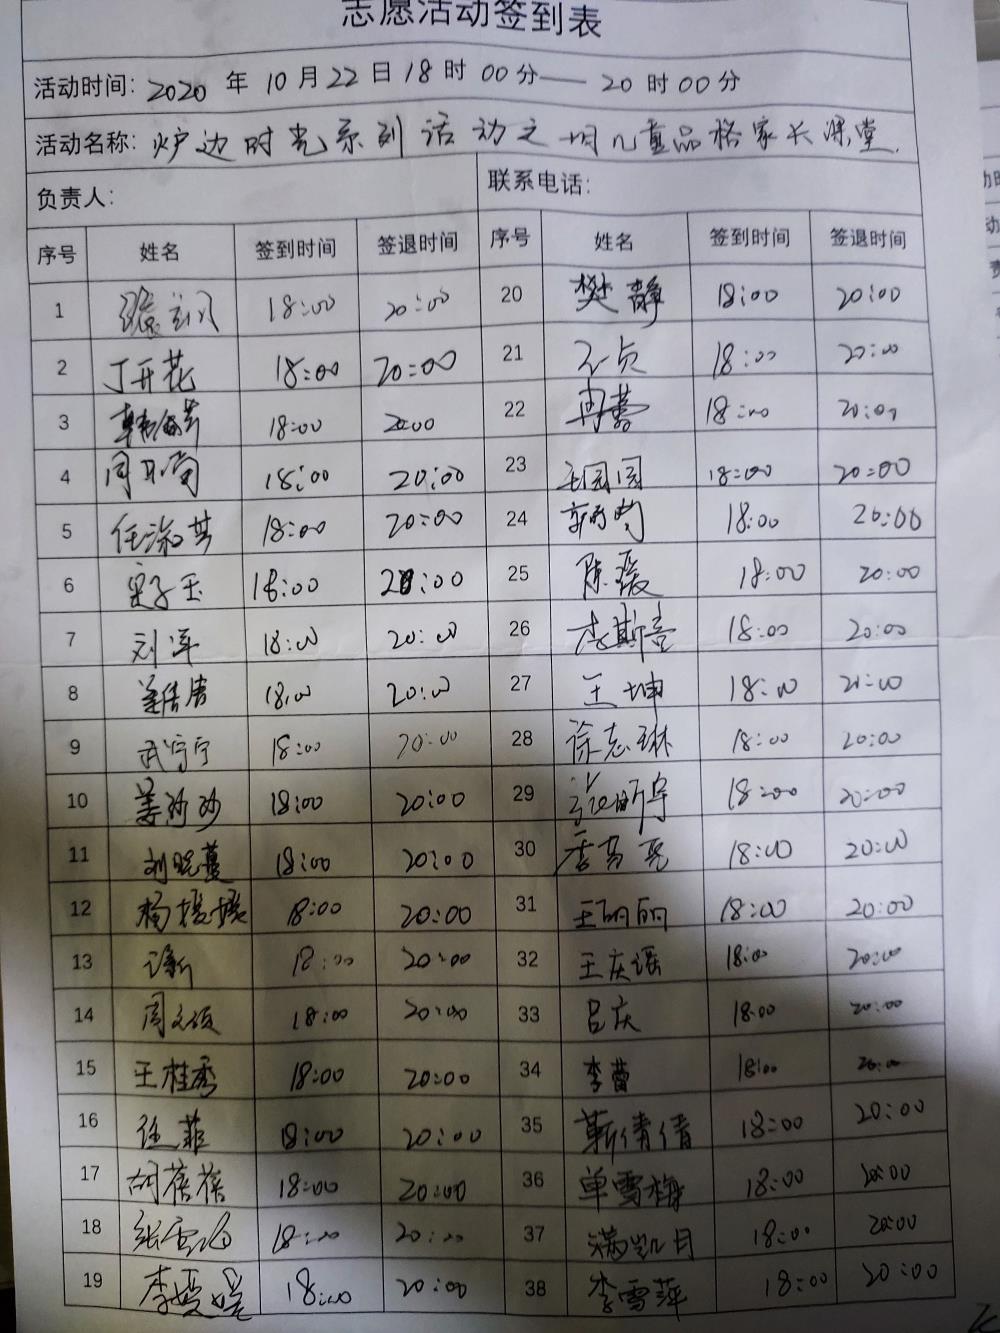 志愿活动签到表
活动时间: 2020 年 10 月 22 日 18 时 00 分—— 20 时 00 分
活动名称: 炉边时光系列活动之 儿童品格家长课堂
负责人: 联系电话:
序号 姓名 签到时间 签退时间 序号 姓名 签到时间 签退时间
1 18:00 20:00 20 樊静 18:00 20:00
2 丁开花 18:00 20:00 21 18:00 20:00
3 18:00 2000 22 冉蕾 18:00 20:00
4 18:00 20:00 23 王园园 18:00 20:00
5 18:00 20:00 24 18:00 20:00
6 18:00 20:00 25 陈瑗 18:00 20:00
7 刘军 18:00 20:00 26 李斯 18:00 20:00
8 18:00 20:00 27 王坤 18:00 20:00
9 武宁宁 18:00 20:00 28 徐志琳 18:00 20:00
10 姜沙沙 18:00 20:00 29 18:00 20:00
11 刘晓蔓 18:00 20:00 30 18:00 20:00
12 杨媛媛 18:00 20:00 31 王丽丽 18:00 20:00
13 18:00 20:00 32 王庆瑶 18:00 20:00
14 18:00 20:00 33 吕庆 18:00 20:00
15 王桂秀 18:00 20:00 34 李蕾 18:00 20:00
16 任菲 18:00 20:00 35 靳倩倩 18:00 20:00
17 胡蓓蓓 18:00 20:00 36 单雪梅 18:00 20:00
18 18:00 20:00 37 满凯月 18:00 20:00
19 李媛媛 18:00 20:00 38 李雪萍 18:00 20:00